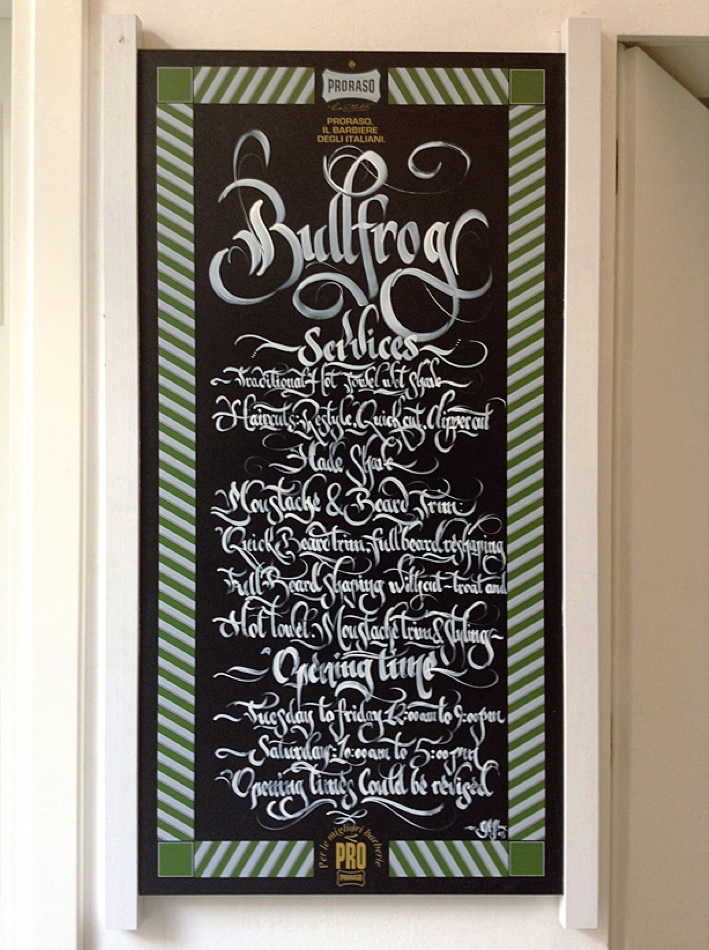 PRORASO
PRORASO,
IL BARBIERE
DEGLI ITALIANI.
Bullfrog
Services
Traditional Hot Towel Shave
Haircuts: Restyle, Quick cut, Clipper cut
Shave
Moustache & Beard Trim:
Quick Beard trim, full beard reshaping
Full Beard Shaping
Hot towel, Moustache trim & styling
Opening time
Tuesday to friday 12:00am to 9:00pm
Saturday: 10:00am to 5:00pm
Opening times Could be revised
Per le migliori barberie
PRO
PRORASO